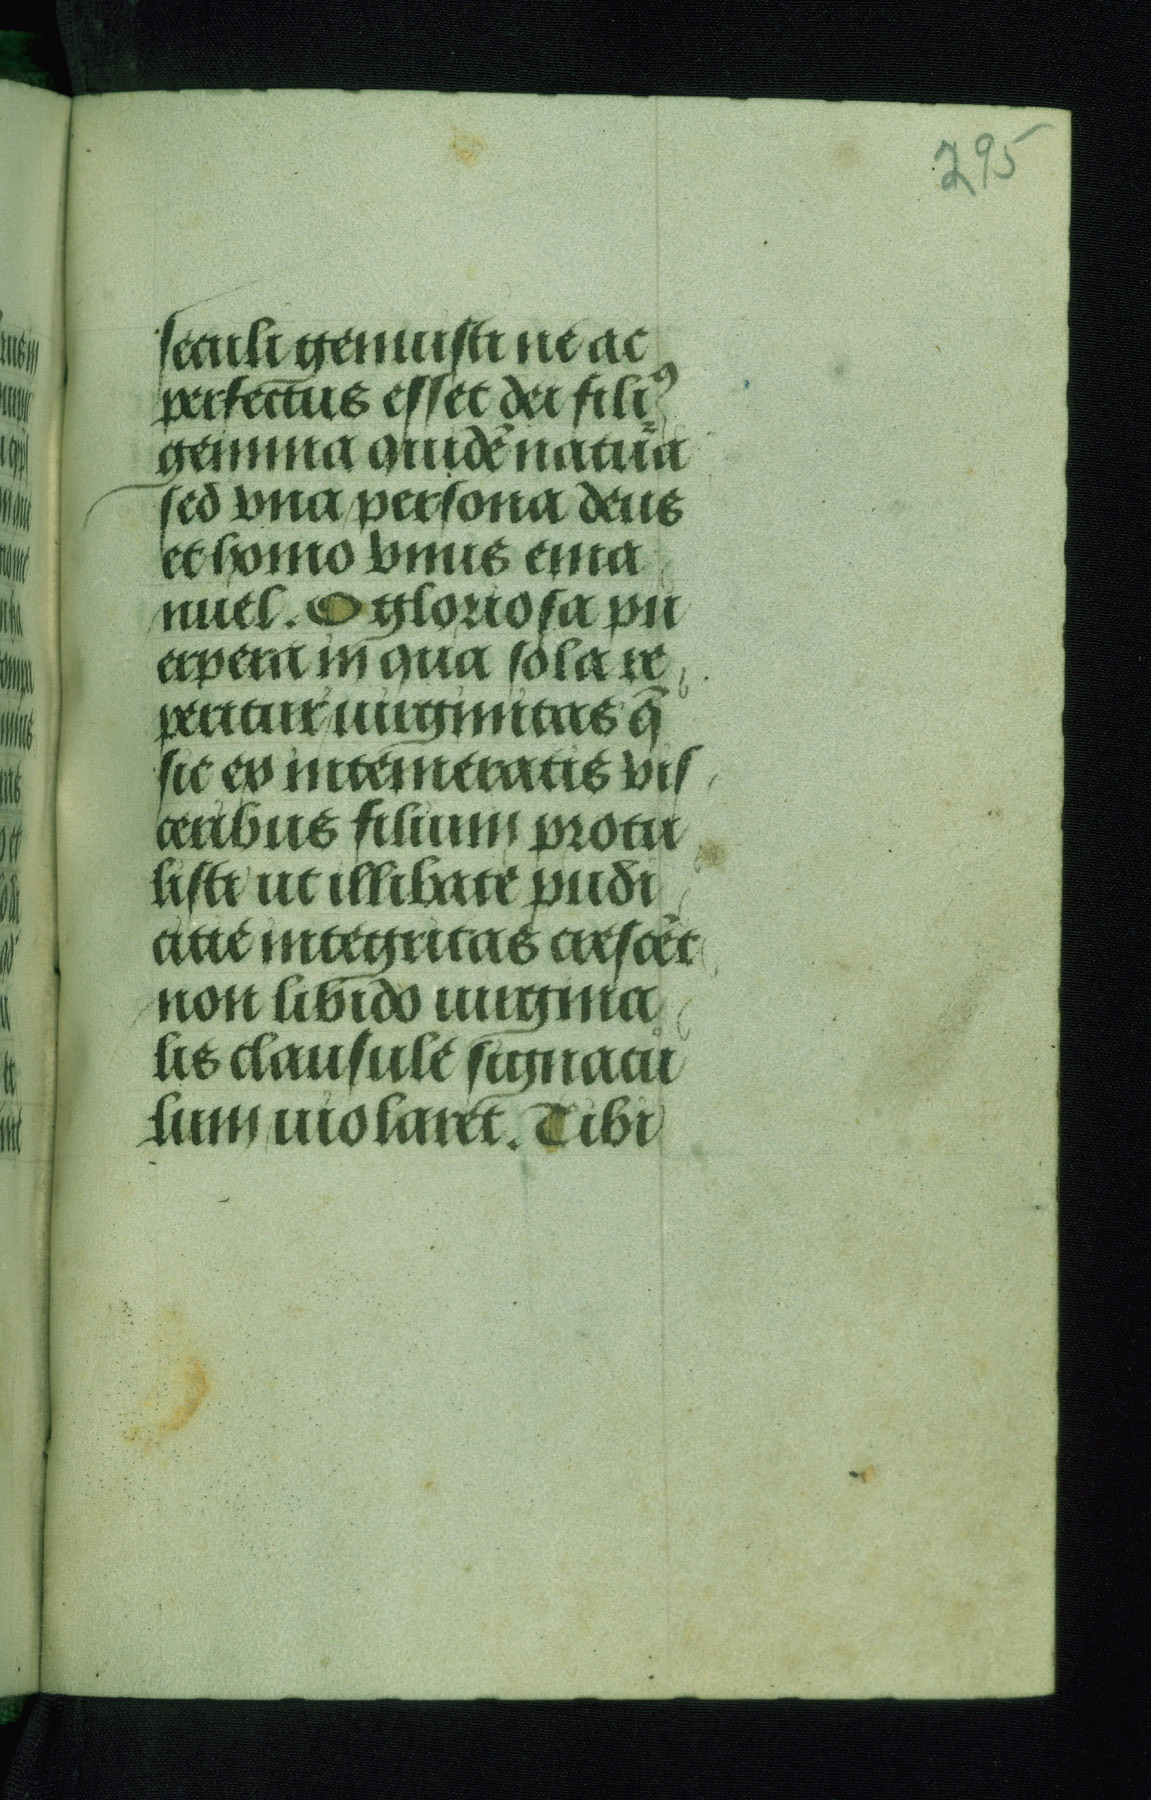 295
seculi genuisti ne ac
perfectus esset dei fili⁹
gemina quidē natur̄a
sed vna persona deus
et homo vnius ema
nuel. O gloriosa pu
erpera in qua sola re
peritur uirginitas q̄
sic ex intemeratis vis
ceribus filium protu
listi ut illibate pudi
citie integritas crescēt
non libido uirgina
lis clausule signacu
lum uiolaret. Tibi